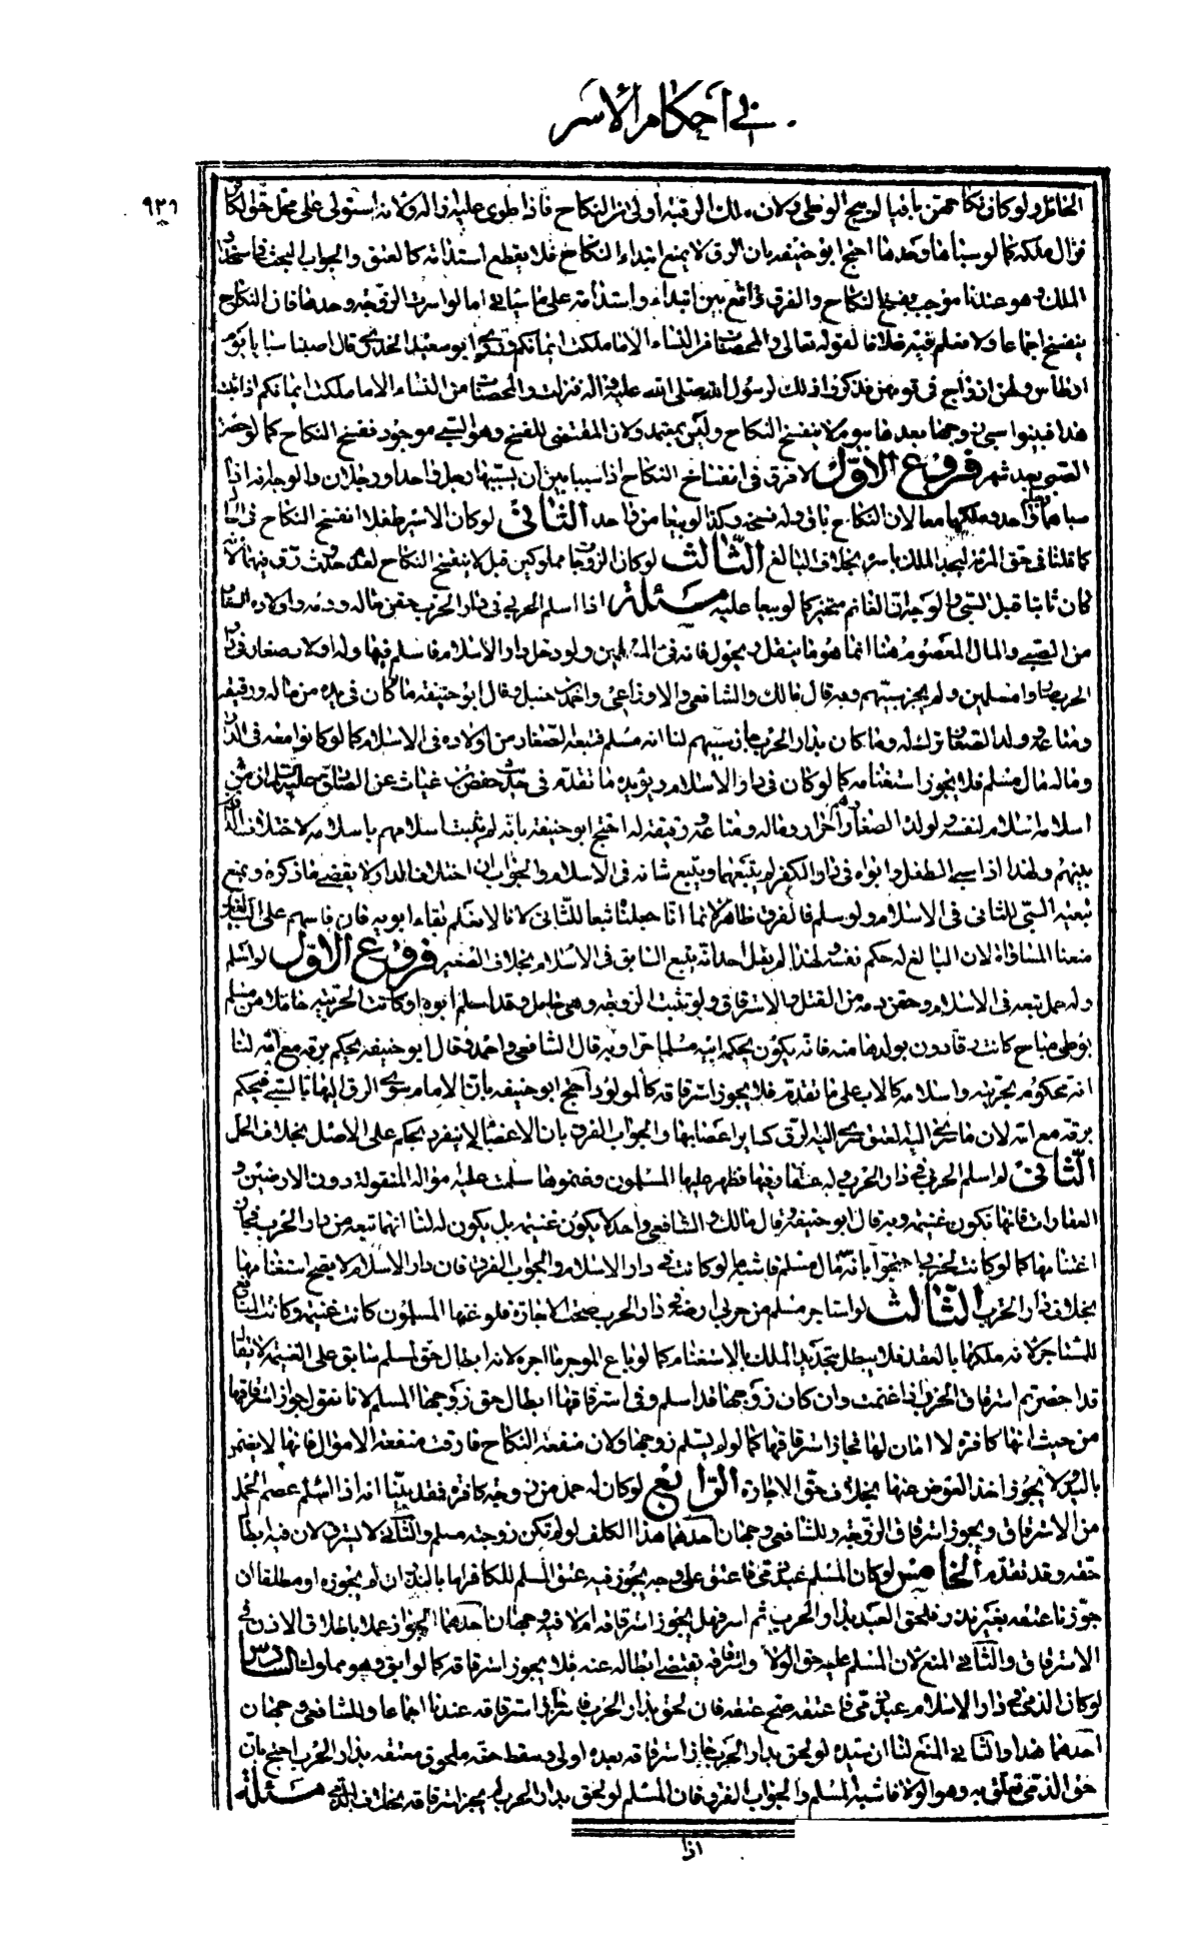 في أحكام الأسر
٩٢٩
الحائل ولو كان نكاحهن باقيا لم يبح الوطي ولان ملك الرقبة أولى من النكاح فاذا طرى عليه ازاله ولانه استولى على محل حق الكافر
فزال ملكه كما لو سباها وحدها احتج ابو حنيفة بان الرق لا يمنع ابتداء النكاح فلا يقطع استدامته كالعتق والجواب البحث في استحداث
الملك وهو عندنا موجب لفسخ النكاح والفرق واقع بين ابتدائه واستدامته على ما سيأتي اما لو اسرت الزوجة وحدها فان النكاح
ينفسخ اجماعا ولا نعلم فيه خلافا لقوله تعالى والمحصنات من النساء الا ما ملكت ايمانكم وذكر ابو سعيد الخدري قال اصبنا سبايا يوم
اوطاس ولهن ازواج في قومهن فذكروا ذلك لرسول الله صلى الله عليه واله فنزلت والمحصنات من النساء الا ما ملكت ايمانكم اذا ثبت
هذا فبينوا سبي زوجها بعدها بيوم لا ينفسخ النكاح وليس بمعتمد ولان المقتضي للفسخ وهو السبي موجود فنفسخ النكاح كما لو حضرت
السبي بعد شهر فروع الاول لا فرق في انفساخ النكاح اذا سبيا بين ان يسبيهما رجل واحد او رجلان والوجه انه اذا
سباهما واحد وملكهما معا لان النكاح باق وله فسخه وكذا لو بيعا من واحد الثاني لو كان الاسير طفلا انفسخ النكاح في الحال
كما قلنا في حق المرأة لتجدد الملك باسره بخلاف البالغ الثالث لو كان الزوجان مملوكين قبل لا ينفسخ النكاح لعدم حدوث رق فيهما لانه
كان ثابتا قبل السبي والوجه ان الغانم متخير كما لو بيعا عليه مسئلة اذا اسلم الحربي في دار الحرب حقن ماله ودمه واولاده الصغار
من السبي والمال المعصوم هنا انما هو ما ينقل ويحول فانه فئ المسلمين ولو دخل دار الاسلام فاسلم فيها وله اولاد صغار في دار
الحرب صاروا مسلمين ولم يجز سبيهم وبه قال مالك والشافعي والاوزاعي واحمد بن حنبل وقال ابو حنيفة ما كان في يده من ماله ورقيقه
ومتاعه وولده الصغار ترك له وما كان بدار الحرب جاز سبيهم لنا انه مسلم فتبعه الصغار من اولاده في الاسلام كما لو كانوا معه في الدار
وماله مال مسلم فلا يجوز استغنامه كما لو كان في دار الاسلام ويؤيده ما تقدم في حديث حفص بن غياث عن الصادق عليه السلام ان من
اسلامه اسلام لنفسه ولولده الصغار وهم احرار وماله ومتاعه ورقيقه له احتج ابو حنيفة بانه لم يثبت اسلامهم باسلامه لاختلاف الدار
بينهم ولهذا اذا سبي الطفل وابواه في دار الكفر لم يتبعهما ويتبع سابيه في الاسلام والجواب ان اختلاف الدار لا يقتضي ما ذكره ونمنع
تبعية السبي للثاني في الاسلام ولو سلم فالفرق ظاهر لانا انما جعلناه تبعا للثاني لانا لا نعلم بقاء ابويه فان قاسهم على البالغين
منعنا المساواة لان البالغ له حكم نفسه لهذا لم يقل احد انه يتبع السابي في الاسلام بخلاف الصغير فروع الاول لو اسلم
وله حمل تبعه في الاسلام وحقن دمه من القتل والاسترقاق ولو سبيت الزوجة وهي حامل وقد اسلم ابوه او كانت الحربية حاملا من مسلم
بوطي مباح كانت رقا دون ولدها منه فانه يكون بحكم ابيه مسلما حرا وبه قال الشافعي واحمد وقال ابو حنيفة يحكم برقه مع امه لنا
انه محكوم بحريته واسلامه كالاب على ما تقدم فلا يجوز استرقاقه كالمولود احتج ابو حنيفة بان الام سرى الرق اليها بالسبي فيحكم
برقه مع امه لان ما سرى اليه العتق سرى اليه الرق كساير اعضائها والجواب الفرق بان الاعضاء لا ينفرد بحكم على الاصل بخلاف الحمل
الثاني لو اسلم الحربي في دار الحرب وله عقار فيها فظهر عليها المسلمون وغنموها سلمت عليه امواله المنقولة دون الارضين و
العقارات فانها تكون غنيمة وبه قال ابو حنيفة وقال مالك والشافعي واحمد لا يكون غنيمة بل يكون له لنا انها تبعه من دار الحرب فجاز
اغتنامها كما لو كانت لحربي احتجوا بانه مال مسلم فاشبه ما لو كانت في دار الاسلام والجواب الفرق فان دار الاسلام لا يصح استغنامها
بخلاف دار الحرب الثالث لو استاجر مسلم من حربي ارضه في دار الحرب صحت الاجارة فلو غنمها المسلمون كانت غنيمة وكانت المنافع
للمستاجر لانه ملكها بالعقد فلا يبطل بتجديد الملك بالاستغنام كما لو باع الموجر ما اجره لانه ابطال حق المسلم سابق على الغنيمة لا يقال
قد اجزتم استرقاق الحربية اذا غنمت وان كان زوجها قد اسلم وفي استرقاقها ابطال حق زوجها المسلم لانا نقول يجوز استرقاقها
من حيث انها كافرة لا امان لها فجاز استرقاقها كما لو لم يسلم زوجها ولان منفعة النكاح فارقت منفعة الاموال فانها لا يضمن
باليد ولا يجوز اخذ العوض عنها بخلاف حق الاجارة الرابع لو كان له حمل من زوجة كافرة فقد بينا انه اذا اسلم عصم الحمل
من الاسترقاق ويجوز استرقاق الزوجة وللشافعي وجهان احدهما هذا الكلف لو لم تكن زوجته مسلم والثاني لا يسترق لان فيه ابطال
حقه وقد تقدم الخامس لو كان لمسلم عبد ذمي فاعتق على وجه يجوز فيه عتق المسلم للكافر اما بالنذر ان لم يجوزه او مطلقا ان
جوزنا عتقه بغير نذر فلحق العبد بدار الحرب ثم اسر فهل يجوز استرقاقه ام لا فيه وجهان احدهما الجواز عملا باطلاق الاذن في
الاسترقاق والثاني المنع لان المسلم عليه حق الولاء واسترقاقه يقتضي ابطاله عنه فلا يجوز استرقاقه كما لو ابق وهو مملوك السادس
لو كان الذمي في دار الاسلام عبد ذمي فاعتقه صح عتقه فان لحق بدار الحرب فاسر جاز استرقاقه عندنا اجماعا وللشافعي وجهان
احدهما هذا والثاني المنع لنا ان سيده لو لحق بدار الحرب جاز استرقاقه فعبده اولى ويسقط حقه ملحوق معتقه بدار الحرب احتج بان
حق الذمي تعلق به وهو الولاء فاشبه المسلم والجواب الفرق فان المسلم لو لحق بدار الحرب لم يجز استرقاقه بخلاف الذمي مسئلة
اذا